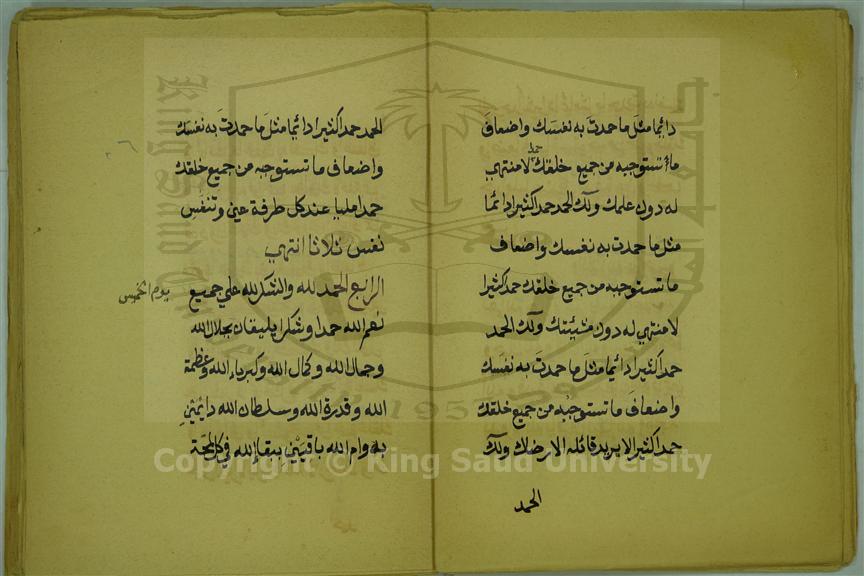 دائما مثل ما حمدت به نفسك واضعاف
ما تستوجبه من جميع خلقك حمدا لا منتهي
له دون علمك ولك الحمد حمدا كثيرا دائما
مثل ما حمدت به نفسك واضعاف
ما تستوجبه من جميع خلقك حمدا كثيرا
لا منتهي له دون مشيئتك ولك الحمد
حمدا كثيرا دائما مثل ما حمدت به نفسك
واضعاف ما تستوجبه من جميع خلقك
حمدا كثيرا لا يريد قائله الا رضاك ولك
الحمد
الحمد حمدا كثيرا دائما مثل ما حمدت به نفسك
واضعاف ما تستوجبه من جميع خلقك
حمدا مليا عند كل طرفة عين وتنفس
نفس ثلاثا انتهي
الرابع الحمد لله والشكر لله علي جميع
يوم الخميس
نعم الله حمدا وشكرا يليقان بجلال الله
وجمال الله وكمال الله وكبرياء الله وعظمة
الله وقدرة الله وسلطان الله دائمين
بدوام الله باقيين ببقاء الله في كل لمحة
Copyright © King Saud University
1957